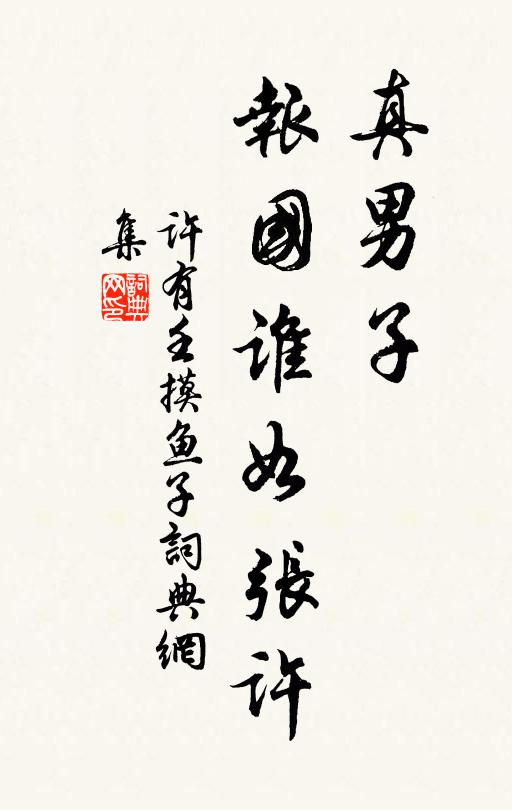 真男子
報國誰如張許
許有壬摸鱼子詞典網
集
詞典
网印